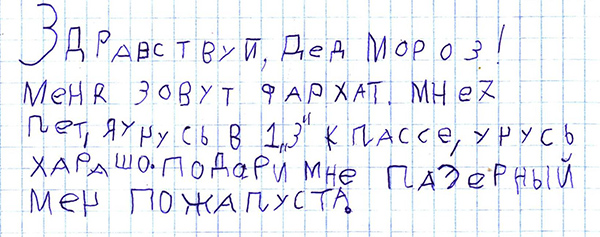 Здравствуй, Дед Мороз!
Меня зовут Фархат. Мне 7
лет, я учусь в 1 „З" классе, учусь
харашо. Подари мне лазерный
меч пожалуста.